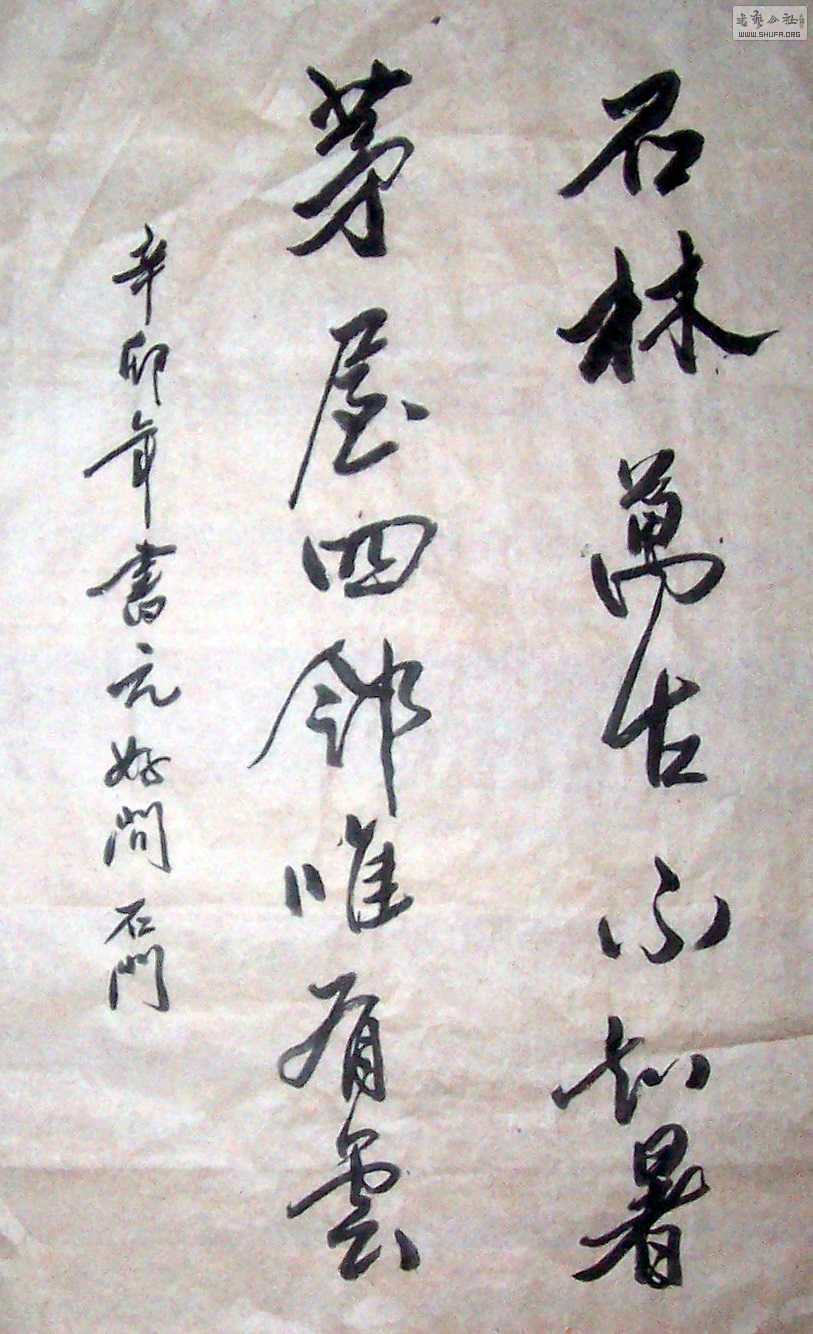 石林萬古不知暑
茅屋四鄰唯有雲
辛卯年書元好問 石門
WWW.SHUFA.ORG